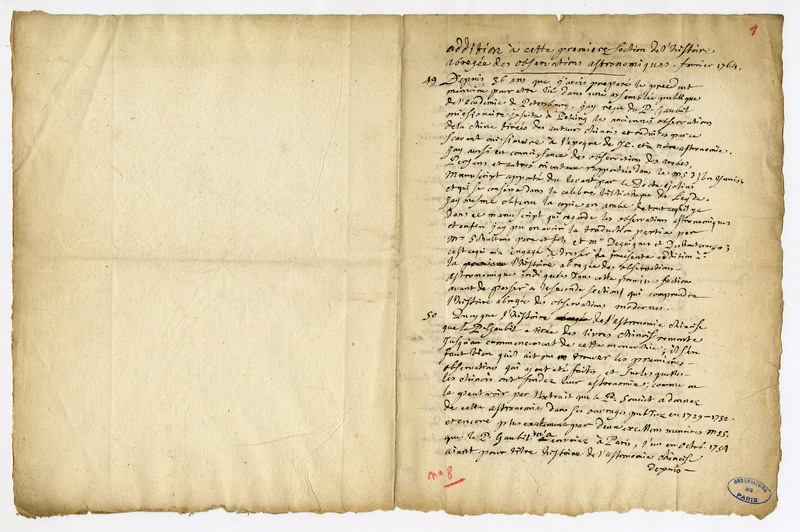 1
addition à cette premiere section de l'histoire
abregée des observations astronomiques. fevrier 1764.
49 Depuis 36 ans que j'avois preparé le precedent
memoire pour etre lû dans une assemblée publique
de l'academie de Petersbourg, j'ay reçu du P. Gaubil
missionaire jesuite à Peking les anciennes observations
de la chine tirées des auteurs chinois et reduites par ce
sçavant missionaire à l'epoque de J.C. et à nôtre astronomie.
j'ay aussi eu connoissance des observations des arabes,
Persiens et autres orientaux rapportées dans le ms. d'Ibn Iunis;
Manuscript apporté du levant par le Docte Golius
et qui se conserve dans la celebre bibliotheque de Leyde.
j'ay mesme obtenu la copie en arabe de tout ce qu'il y a
dans ce manuscript qui regarde les observations astronomiques
et enfin j'ay pu en avoir la traduction par
Mrs Schultens pere et fils et Mr Deguignes
c'est ce qui m'a engagé à dresser la presente addition à
la l'histoire abregée des observations
astronomiques indiquées dans cette premiere section
avant de passer à la seconde section qui comprendra
l'histoire abregée des observations modernes.
50 Quoyque l'histoire de l'astronomie chinoise
que le P. Gaubil a tirée des livres chinois remonte
jusqu'au commencement de cette monarchie, il s'en
faut bien qu'il ait pu trouver les premieres
observations qui ayent eté faites, et sur les quelles
les chinois ont fondez leur astronomie; comme on
le peut voir par l'extrait que le P. Souciet a donnez
de cette astronomie dans ses ouvrages publiez en 1729-1732.
et encore plus par deux excellens memoires mss.
que le P. Gaubil m'a envoiez à Paris, l'un en Octob. 1754
aiant pour titre histoire de l'astronomie chinoise
depuis
no 8
OBSERVATOIRE
DE
PARIS